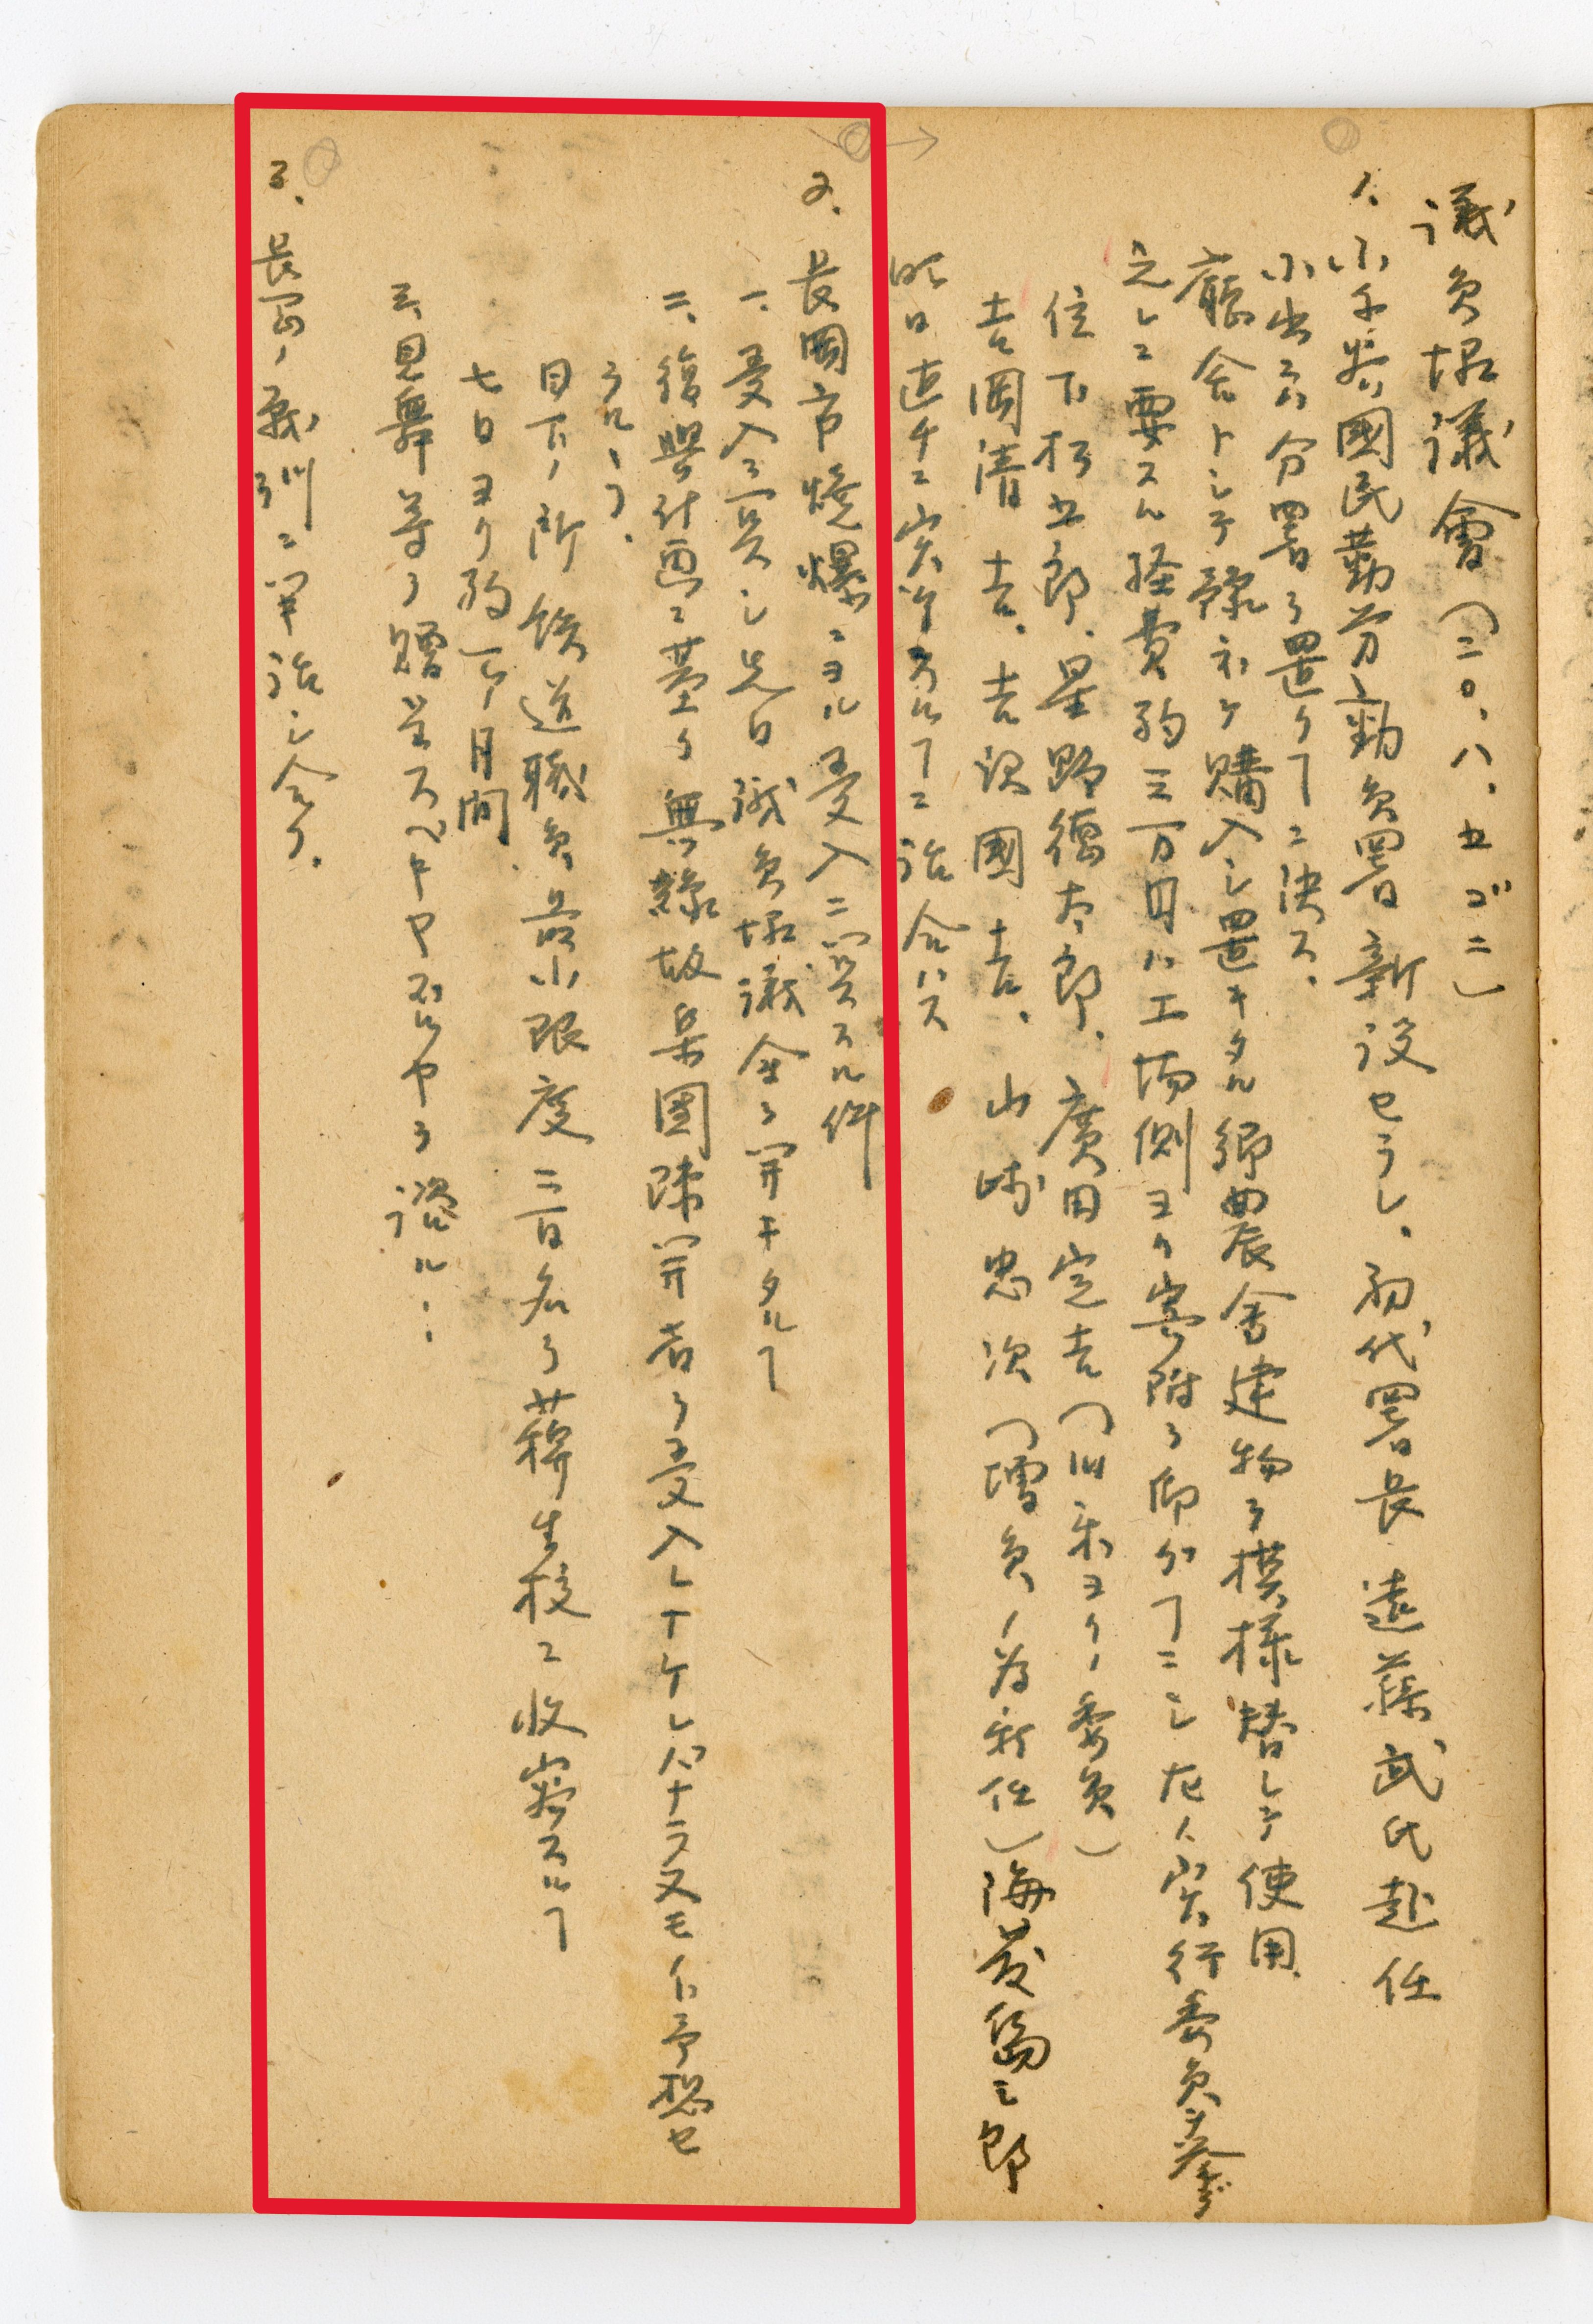 議員協議會(二〇、八、五ゴニ)
1. 小千谷國民勤労動員署新設セラレ、初代署長遠藤武氏赴任
小出ニ分署ヲ置クコトニ決ス、
廳舎トシテ豫ネテ購入シ置キタル郷農舎建物ヲ模様替シテ使用
之レニ要スル経費約三万円ハ工場側ヨリ寄附ヲ仰グコトニシ左ノ実行委員ヲ挙グ
住下松五郎、星野德太郎、廣田定吉(旧来ヨリノ委員)
吉岡清吉、吉沢國吉、山崎忠次(増員ノ為新任)海發爲三郎
明日直チニ実行スルコトニ話合ハス
2. 長岡市燒爆ニヨル受入ニ関スル件
一、受入ニ関シ先日議員協議会ヲ開キタルコト
二、復興計画ニ基ク無縁故集團疎開者ヲ受入レナケレバナラヌモノト予想セ
ラル、コト、
目下ノ所鉄道職員最小限度二百名ヲ薭生校ニ收容スルコト
七日ヨリ約一ヶ月間
三、見舞等ヲ贈呈スベキヤ否ヤヲ諮ル…
3. 長岡ノ戦訓ニ関シ話シ合フ、